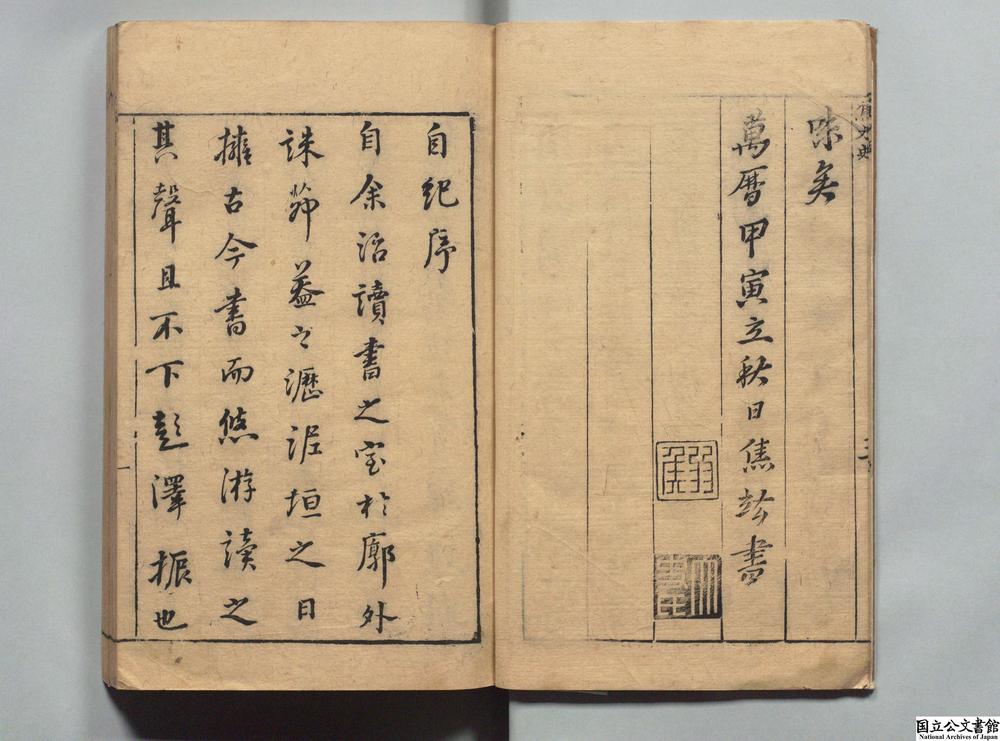 味矣
萬曆甲寅立秋日焦竑書
自紀序
自余治讀書之室於廓外
誅茆蓋之瀝泥垣之日
擁古今書而悠游讀之
其聲且不下彭澤振也
国立公文書館
National Archives of Japan